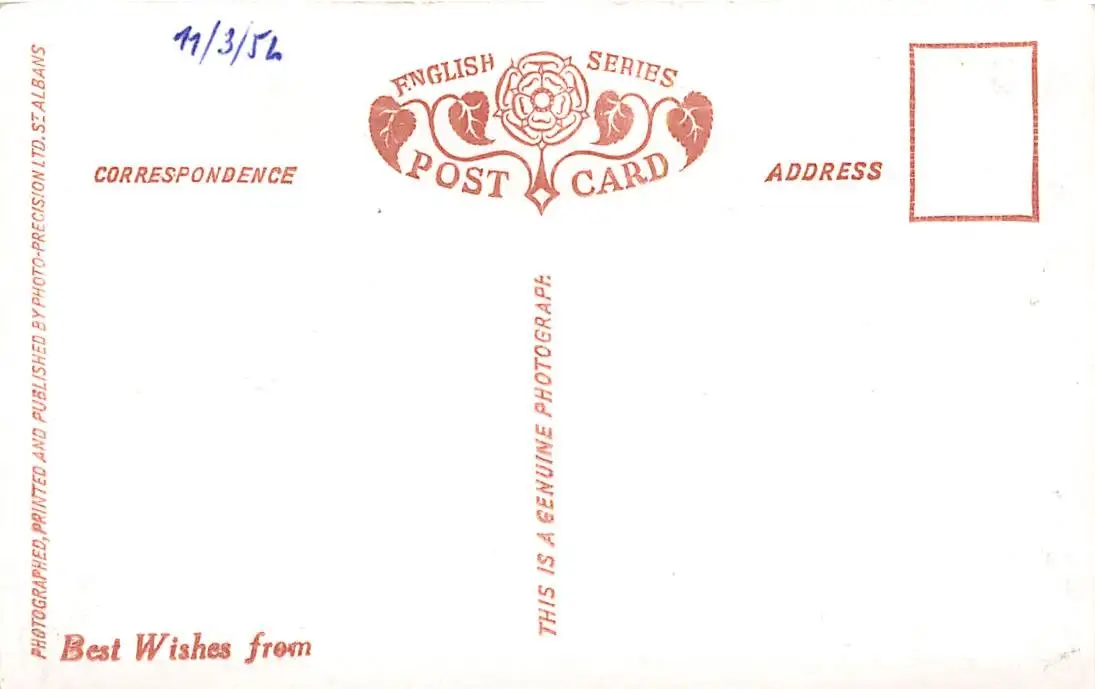 11/3/52
ENGLISH SERIES
POST CARD
CORRESPONDENCE
ADDRESS
PHOTOGRAPHED, PRINTED AND PUBLISHED BY PHOTO-PRECISION LTD. ST ALBANS
THIS IS A GENUINE PHOTOGRAPH
Best Wishes from